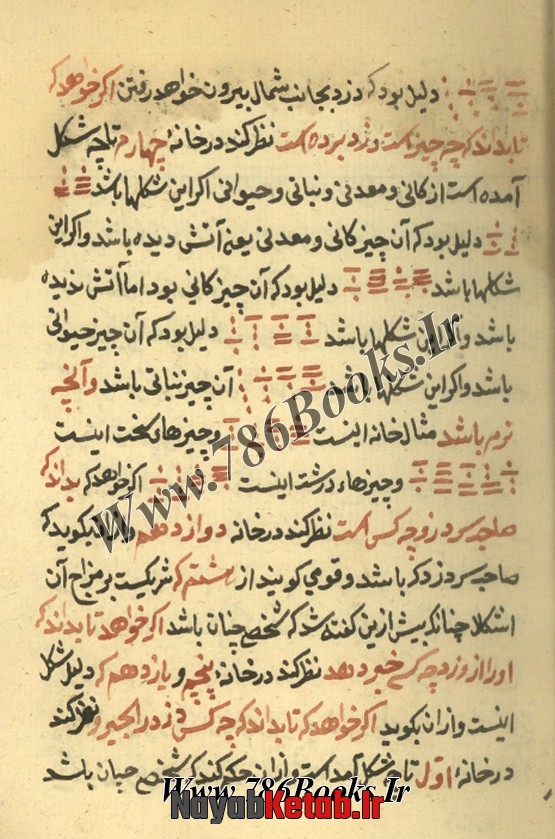 دلیل بود که دزد بجانب شمال بیرون خواهد رفتن اکر خواهد که
تا بداند که چه چیز است و دزد برده است نظر کند در خانهٔ چهارم تا چه شکل
آمده است از کانی و معدنی و نباتی و حیوانی اکر این شکلها باشد
دلیل بود که آن چیز کانی و معدنی یعنی آتش دیده باشد و اکر این
شکلها باشد دلیل بود که آن چیز کانی بود اما آتش ندیده
باشد و اکر این شکلها باشد دلیل بود که آن چیز حیوانی
باشد و اکر این شکلها باشد آن چیز نباتی باشد و آنچه
نرم باشد مثال خانه اینست و چیزهاء سخت اینست
و چیزهاء درشت اینست اکر خواهد که بداند که
صاحب سر دزد چه کس است نظر کند در خانه دوازدهم و از آن بکوید که
صاحب سر دزد که باشد و قومی کویند از هشتم که شریکست بر مزاج آن
اشکال چنانکه پیش ازین کفته شد که شخصی چنان باشد اکر خواهد تا بداند که
او را از دزد چه کسی خبر دهد نظر کند در خانهٔ پنجم و یازدهم که دلیل شکل
اینست و از آن بکوید اکر خواهد که تا بداند که چه کس دزد را نظر کند
در خانهٔ اول تا چه شکل آمد است و از آن حکم کند که شخصی چنان باشد
Www.786Books.Ir
Www.786Books.Ir
NayabKetab.Ir